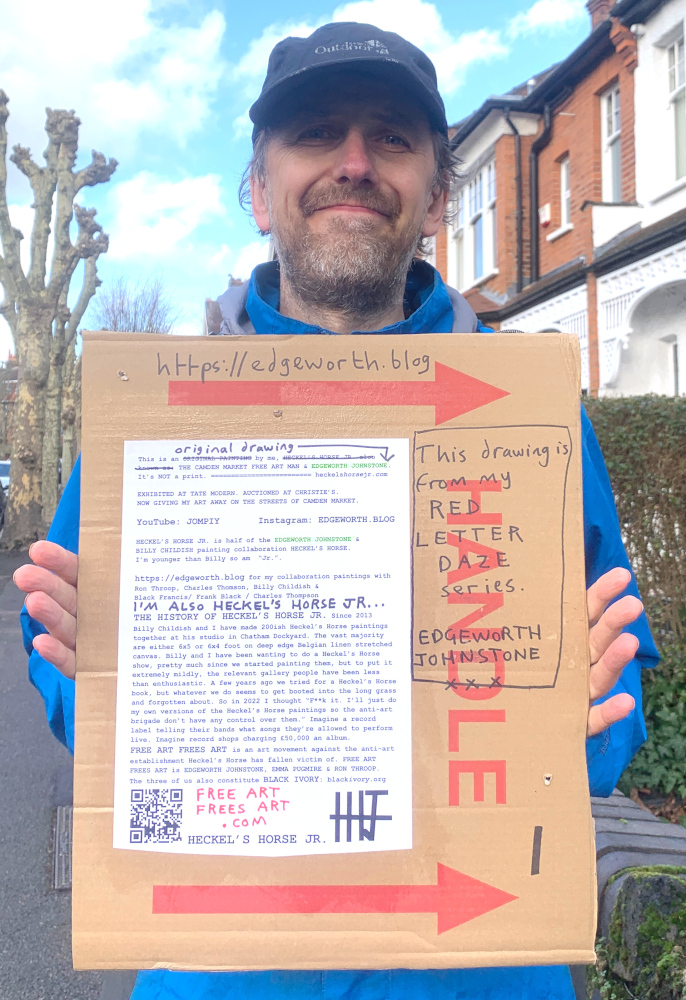 Outdoor
https://edgeworth.blog
original drawing
This is an ORIGINAL PAINTING by me, HECKEL'S HORSE JR. also
known as: THE CAMDEN MARKET FREE ART MAN & EDGEWORTH JOHNSTONE.
It's NOT a print. ======================== heckelshorsejr.com
EXHIBITED AT TATE MODERN. AUCTIONED AT CHRISTIE'S.
NOW GIVING MY ART AWAY ON THE STREETS OF CAMDEN MARKET.
YouTube: JOMPIY Instagram: EDGEWORTH.BLOG
HECKEL'S HORSE is half of the EDGEWORTH JOHNSTONE &
BILLY CHILDISH painting collaboration HECKEL'S HORSE.
I'm younger than Billy so am "Jr.".
https://edgeworth.blog for my collaboration paintings with
Ron Throop, Charles Thomson, Billy Childish &
Black Francis/ Frank Black / Charles Thompson
I'M ALSO HECKEL'S HORSE JR...
THE HISTORY OF HECKEL'S HORSE JR. Since 2013
Billy Childish and I have made 200ish Heckel's Horse paintings
together at his studio in Chatham Dockyard. The vast majority
are either 6x5 or 6x4 foot on deep edge Belgian linen stretched
canvas. Billy and I have been wanting to do a Heckel's Horse
show, pretty much since we started painting them, but to put it
extremely mildly, the relevant gallery people have been less
than enthusiastic. A few years ago we tried for a Heckel's Horse
book, but whatever we do seems to get booted into the long grass
and forgotten about. So in 2022 I thought "F**k it. I'll just do
my own versions of the Heckel's Horse paintings so the anti-art
brigade don't have any control over them." Imagine a record
label telling their bands what songs they're allowed to perform
live. Imagine record shops charging £50,000 an album.
FREE ART FREES ART is an art movement against the anti-art
establishment Heckel's Horse has fallen victim of. FREE ART
FREES ART is EDGEWORTH JOHNSTONE, EMMA PUGMIRE & RON THROOP.
The three of us also constitute BLACK IVORY: blackivory.org
FREE ART
FREES ART
.COM
HECKEL'S HORSE JR.
This drawing is
from my
RED
LETTER
DAZE
series.
EDGEWORTH
JOHNSTONE
x x x
HANDLE